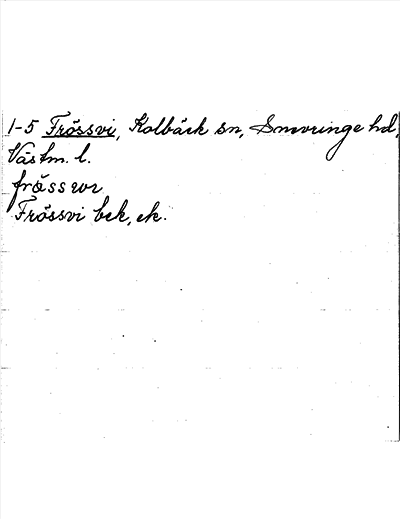 1-5 Frössvi, Kolbäck sn, Snevringe hd,
Västm. l.
fröss wi
Frössvi bek, ek.